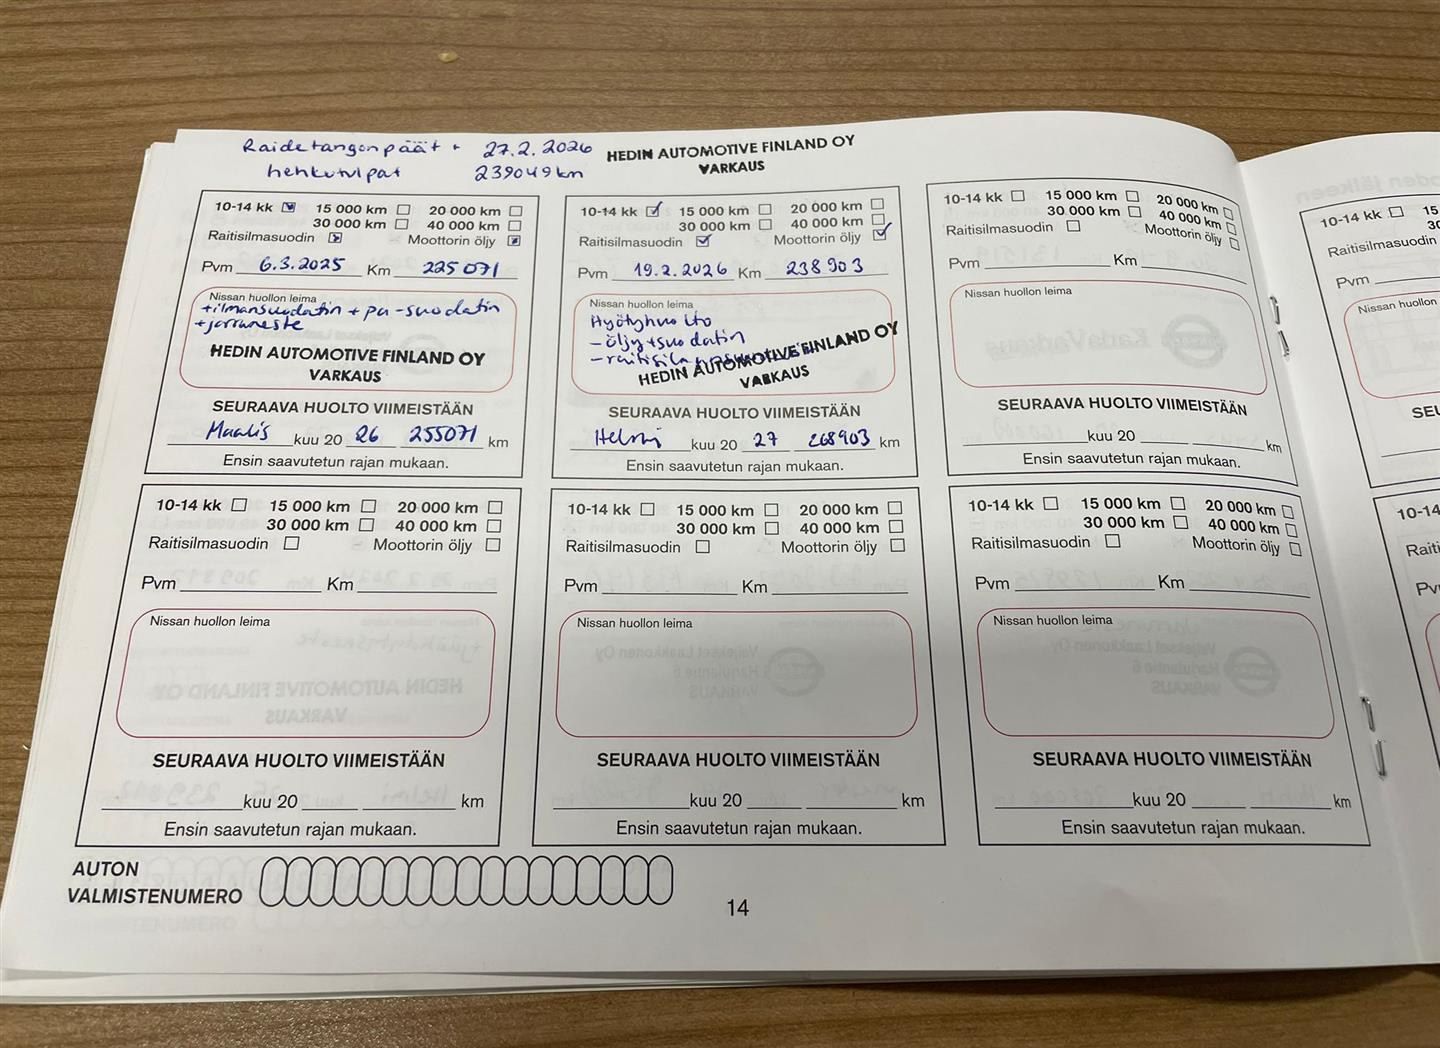 Raidetangonpäät + 27.2.2026
hehkutulpat 239049km
HEDIN AUTOMOTIVE FINLAND OY
VARKAUS
10-14 kk 15 000 km 20 000 km
30 000 km 40 000 km
Raitisilmasuodin Moottorin öljy
Pvm 6.3.2025 Km 225071
Nissan huollon leima
+ilmansuodatin + pa-suodatin
+jarruneste
HEDIN AUTOMOTIVE FINLAND OY
VARKAUS
SEURAAVA HUOLTO VIIMEISTÄÄN
Maalis kuu 20 26 255071 km
Ensin saavutetun rajan mukaan.
10-14 kk 15 000 km 20 000 km
30 000 km 40 000 km
Raitisilmasuodin Moottorin öljy
Pvm 19.2.2026 Km 238903
Nissan huollon leima
Hyötyhuolto
- öljy+suodatin
HEDIN AUTOMOTIVE FINLAND OY
VARKAUS
SEURAAVA HUOLTO VIIMEISTÄÄN
Helmi kuu 20 27 268903 km
Ensin saavutetun rajan mukaan.
10-14 kk 15 000 km 20 000 km
30 000 km 40 000 km
Raitisilmasuodin Moottorin öljy
Pvm Km
Nissan huollon leima
SEURAAVA HUOLTO VIIMEISTÄÄN
kuu 20 km
Ensin saavutetun rajan mukaan.
10-14 kk 15
Raitisilmasuodin
Pvm
Nissan huollon
10-14 kk 15 000 km 20 000 km
30 000 km 40 000 km
Raitisilmasuodin Moottorin öljy
Pvm Km
Nissan huollon leima
SEURAAVA HUOLTO VIIMEISTÄÄN
kuu 20 km
Ensin saavutetun rajan mukaan.
10-14 kk 15 000 km 20 000 km
30 000 km 40 000 km
Raitisilmasuodin Moottorin öljy
Pvm Km
Nissan huollon leima
SEURAAVA HUOLTO VIIMEISTÄÄN
kuu 20 km
Ensin saavutetun rajan mukaan.
10-14 kk 15 000 km 20 000 km
30 000 km 40 000 km
Raitisilmasuodin Moottorin öljy
Pvm Km
Nissan huollon leima
SEURAAVA HUOLTO VIIMEISTÄÄN
kuu 20 km
Ensin saavutetun rajan mukaan.
AUTON
VALMISTENUMERO
14